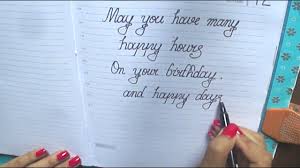 May you have many
happy hours
On your birthday,
and happy days